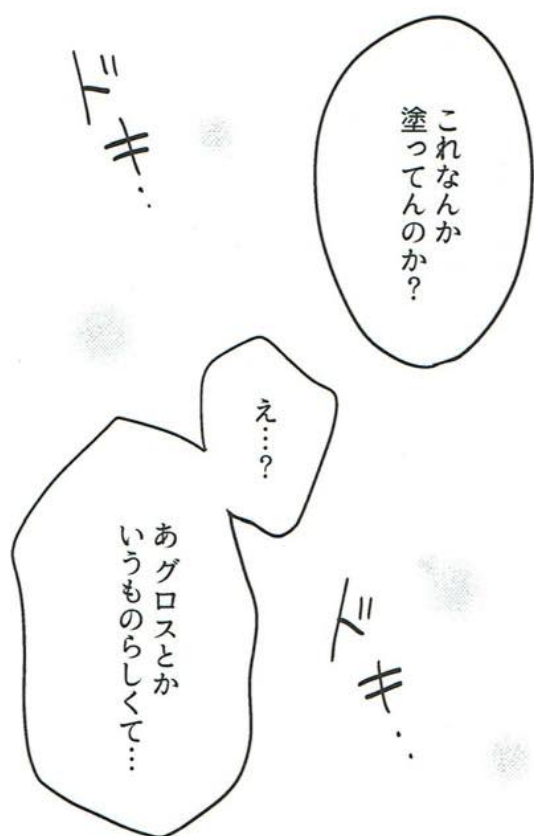 これなんか
塗ってんのか?
ドキ..
え…?
あ グロスとか
いうものらしくて…
ドキ..